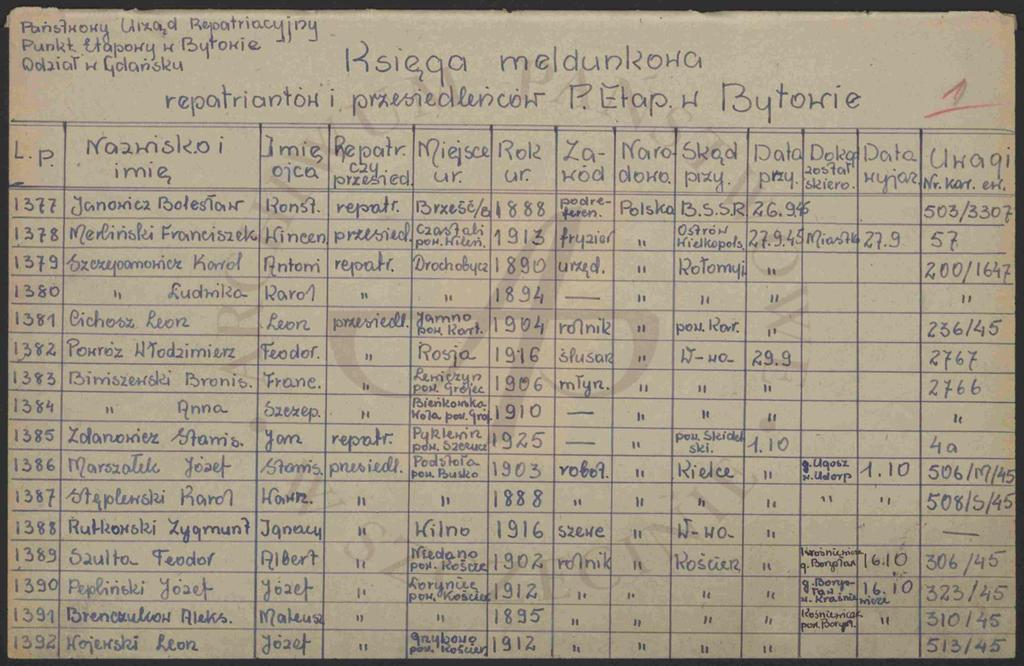 Państwowy Urząd Repatriacyjny
Punkt Etapowy w Bytowie
Odział w Gdańsku
Księga meldunkowa
repatriantów i przesiedleńców P. Etap. w Bytowie
1
L.p. Nazwisko i imię Imię ojca Repatr. czy przesied. Miejsce ur. Rok ur. Zawód Narodowo. Skąd przy. Data przy. Doką został skiero. Data wyjaz. Uwagi Nr. kar. ew.
1377 Janowicz Bolesław Konst. repatr. Brześć/B 1888 Polska B.S.S.R. 26.9.45 503/3307
1378 Merliński Franciszek Wincen. przesiedl. pow. Wileń. 1913 fryzier " Ostrów Wielkopols. 27.9.45 Miastko 27.9 57
1379 Szczepanowicz Karol Antoni repatr. Drochobycz 1890 urzęd. " Kołomyi " 200/1647
1380 " Ludwika Karol " " 1894 — " " " "
1381 Cichosz Leon Leon przesiedl. Jamno pow. Kart. 1904 rolnik " pow. Kar. " 236/45
1382 Powróz Włodzimierz Feodor. " Rosja 1916 ślusar " W-wa 29.9 2767
1383 Biniszewski Bronis. Franc. " Lewiczyn pow. Grójec 1906 młyn. " " " 2766
1384 " Anna Szczep. " Bieńkowska Wola pow. Gró. 1910 — " " " "
1385 Zdanowicz Stanis. Jan repatr. 1925 — " pow. Skidelski. 1.10 4a
1386 Marszałek Józef Stanis. przesiedl. Podstoła pow. Busko 1903 robot. " Kielce " g. Ugosz w. Udorp 1.10 506/M/45
1387 Stęplewski Karol Wawrz. " " 1888 " " " " " " 508/S/45
1388 Rutkowski Zygmunt Ignacy " Wilno 1916 szewc " W-wa " —
1389 Szulta Feodor Albert " pow. Kościer. 1902 rolnik " Kościer. " 16.10 306/45
1390 Pepliński Józef Józef " Loryniec pow. Kościer. 1912 " " " " 16.10 323/45
1391 Brenczukow Aleks. Mateusz " " 1895 " " " " " 310/45
1392 Wojewski Leon Józef " Grzybowo pow. Kościer. 1912 " " " " 513/45